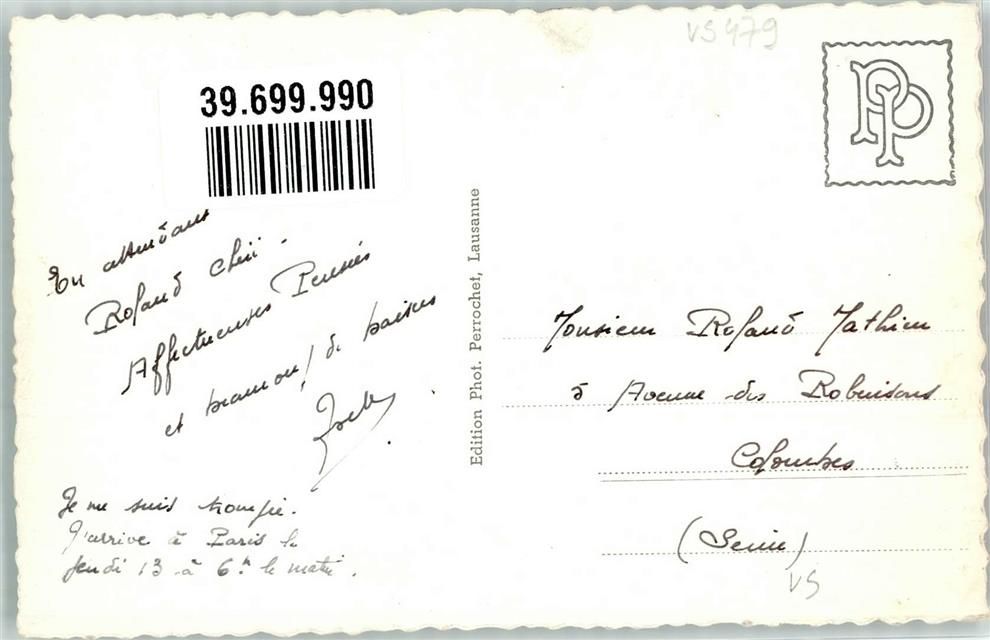 VS 479
39.699.990
PP
En attendant
Roland chéri.
Affectueuses Pensées
et beaucoup de baisers
Je me suis trompée.
J'arrive à Paris le
jeudi 13 à 6h le matin.
Edition Phot. Perrochet, Lausanne
Monsieur Roland Mathieu
5 Avenue des Robinsons
Colombes
(Seine)
VS